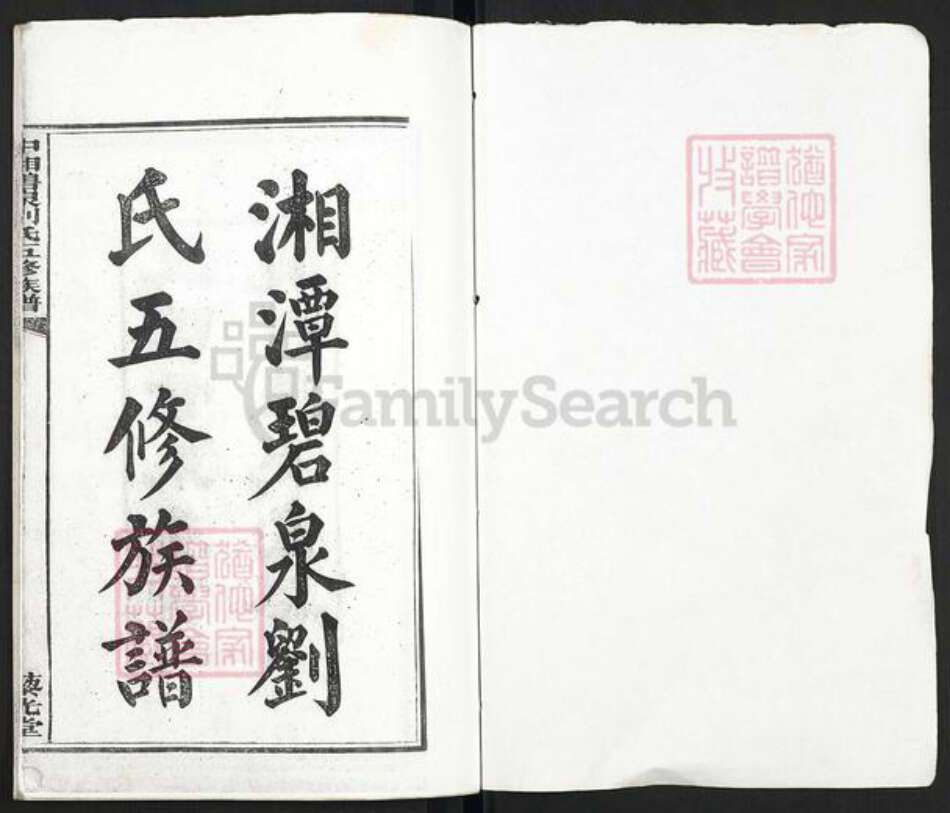 湘潭碧泉劉
氏五修族譜
中湘碧泉刘氏五修族譜
藜光堂
猶他家
譜學會
收藏
猶他家
譜學會
收藏
FamilySearch